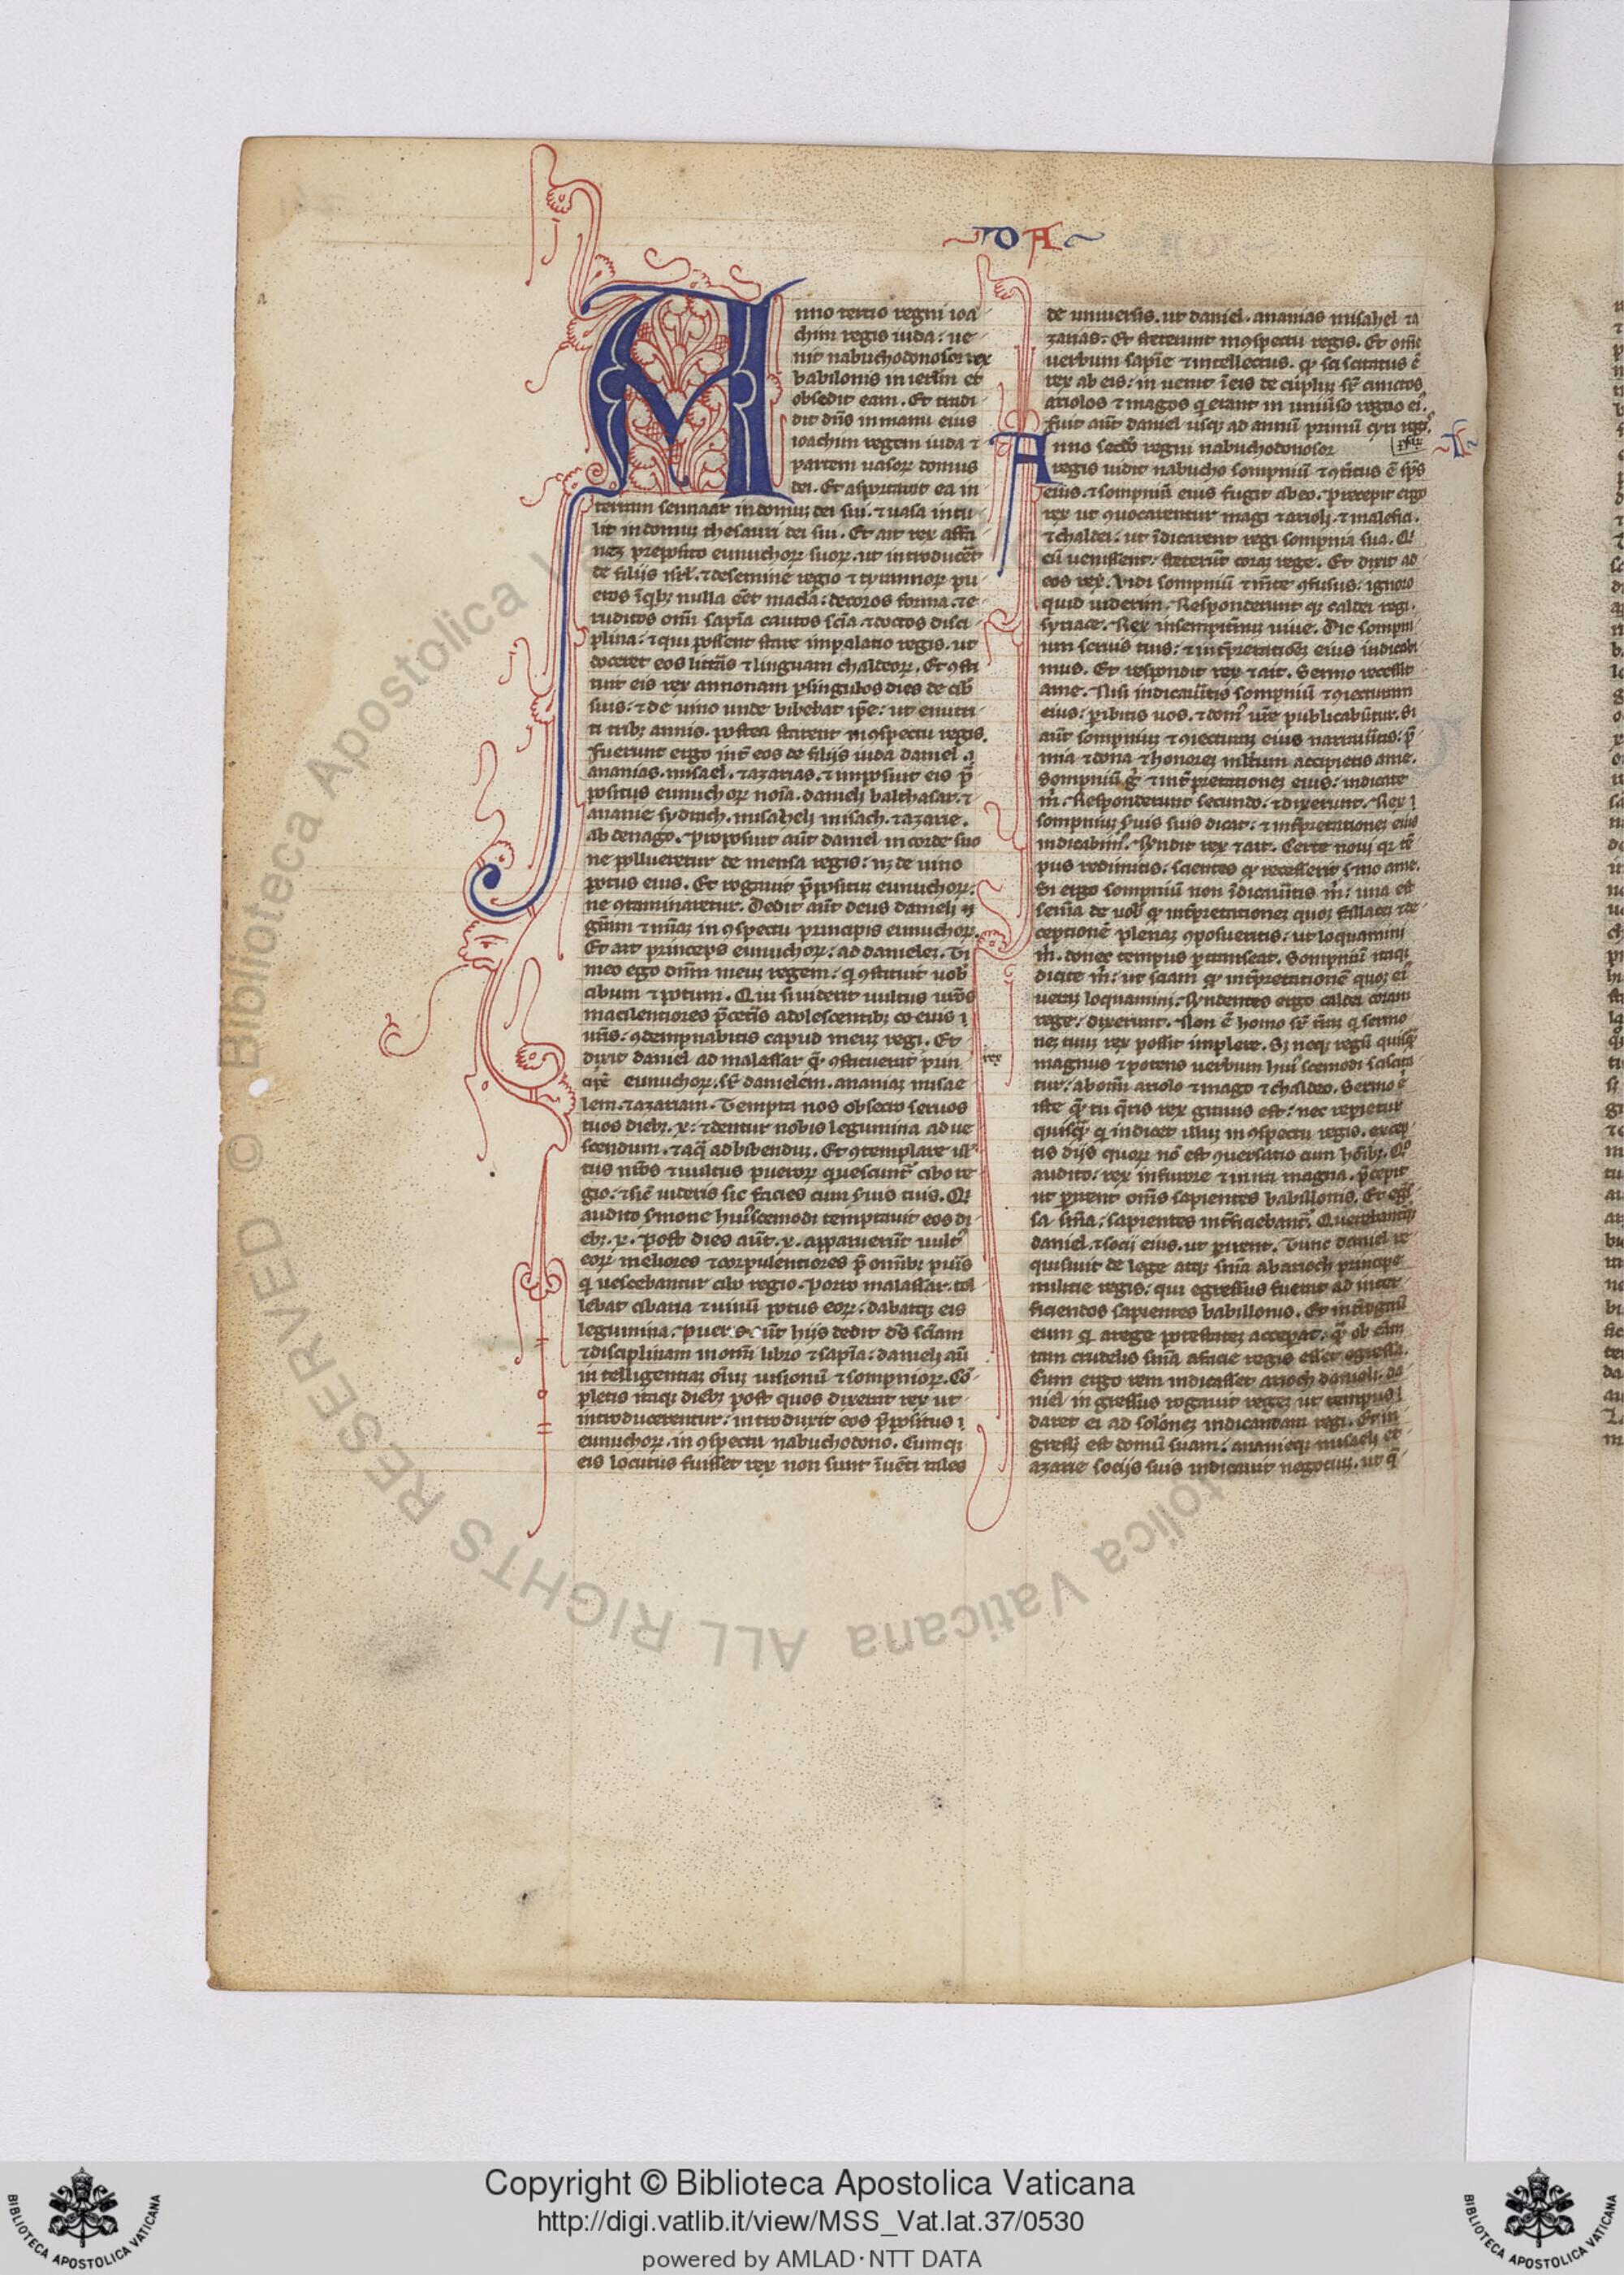 DA
Anno tercio regni ioa
chim regis iuda: ue
nit nabuchodonosor rex
babilonis in ierl̄m et
obsedit eam. Et tradi
dit dn̄s in manu eius
ioachim regem iuda ⁊
partem uasoꝝ domus
dei. Et asportauit ea in
terram sennaar in domuꝫ dei sui. ⁊ uasa intu
lit in domuꝫ thesauri dei sui. Et ait rex asfa
neꝫ preposito eunuchoꝝ suoꝝ. ut introduceret
de filiis isrl̄. ⁊ de semine regio ⁊ tyrannoꝝ pu
eros ī qͥbꝫ nulla eēt macl̄a: decoros forma. ⁊ e
ruditos om̄i sapīa cautos scīa. ⁊ doctos disci
plina: ⁊ qui possent stare in palatio regis. ut
doceret eos litt̄as ⁊ linguam chaldeoꝝ. Et ꝯsti
tuit eis rex annonam ꝑ singulos dies de cib̄
suis: ⁊ de uino unde bibebat ip̄e: ut enutri
ti tribꝫ annis. postea starent in ꝯspectu regis.
Fuerunt ergo int̄ eos de filiis iuda daniel.
ananias. misael. ⁊ azarias. ⁊ imposuit eis p̄
positus eunuchoꝝ noīa. danieli balthasar. ⁊
ananie sydrach. misaheli misach. ⁊ azarie.
abdenago. Proposuit aūt daniel in corde suo
ne pollueretur de mensa regis: nꝫ de uino
potus eius. Et rogauit p̄positum eunuchoꝝ:
ne ꝯtaminaretur. Dedit aūt deus danieli
gr̄am ⁊ mīam in ꝯspectu principis eunuchoꝝ.
Et ait princeps eunuchoꝝ: ad danieleꝫ. Ti
meo ego dn̄m meuꝫ regem: qͥ ꝯstituit uob̄
cibum ⁊ potum. Qui si uiderit uultus ur̄os
macilentiores p̄ cet̄is adolescentibꝫ coeuis
ur̄is: ꝯdempnabitis capud meuꝫ regi. Et
dixit daniel ad malassar qͣ̄ ꝯstituerat prin
ceps eunuchoꝝ. sr̄ danielem. ananiaꝫ misae
lem. ⁊ azariam. Tempta nos obsecro seruos
tuos diebꝫ. x. ⁊ dentur nobis legumina ad ue
scendum. ⁊ aqͣ ad bibendum. Et ꝯtemplare uul
tus nr̄os ⁊ uultus pueroꝝ qui uescunt̄ cibo re
gio. ⁊ sic̄ uideris sic facies cum seruis tuis. Qi
audito sermone huiuscemodi temptauit eos di
ebꝫ. x. Post dies aūt. x. apparuerūt uult̄
eoꝝ meliores ⁊ corpulentiores p̄ om̄ibꝫ pueris
qͥ uescebantur cibo regio. Porro malassar. tol
lebat cibaria ⁊ uinū potus eoꝝ: dabatqꝫ eis
legumina. Pueris aūt hiis dedit dс̄ sciam
⁊ disciplinam in om̄i libro ⁊ sapīa: danieli aū
intelligentiaꝫ oīuꝫ uisionū ⁊ sompnioꝝ. Cō
pletis itaqꝫ diebꝫ post quos dixerat rex ut
introducerentur: introduxit eos p̄positus
eunuchoꝝ. in ꝯspectu nabuchodono. Cumqꝫ
eis locutus fuisset rex non sunt īuēti tales
de uniuersis. ut daniel. ananias misahel ⁊ a
zarias: Et steterunt in ꝯspectu regis. Et om̄e
uerbum sapīe ⁊ intellectus. qͦ sciscitatus ē
rex ab eis: inuenit ī eis decuplum sr̄ cunctos
ariolos ⁊ magos qͥ erant in uniuso regno eiꝰ.
Fuit aūt daniel usqꝫ ad annū primū cyri regis.
Anno secdo regni nabuchodonosor
regis uidit nabucho sompniū ⁊ ꝯt̄itus ē sp̄s
eius. ⁊ sompniū eius fugit ab eo. Precepit ergo
rex ut ꝯuocarentur magi ⁊ arioli. ⁊ malefici.
⁊ chaldei: ut īdicarent regi sompnia sua. Qi
cū uenissent: steterūt coraꝫ rege. Et dixit ad
eos rex. Vidi sompniū ⁊ mēte ꝯfusus: ignoro
quid uiderim. Responderunt qꝫ caldei regi.
syriace. Rex in sempiternū uiue. Dic sompni
um seruis tuis: ⁊ int̄pretationeꝫ eius indicabi
mus. Et respondit rex ⁊ ait. Sermo recessit
a me. Nisi indicauītis sompniū ⁊ ꝯiecturam
eius: ꝑibitis uos. ⁊ domꝰ ur̄e publicabūtur. Si
aūt sompniuꝫ ⁊ ꝯiecturaꝫ eius narrauītis: p̄
mia ⁊ dona ⁊ honoreꝫ multum accipietis a me.
Sompniū gͦ ⁊ int̄pretationeꝫ eius: indicate
m̄. Responderunt secundo: ⁊ dixerunt. Rex
sompniuꝫ seruis suis dicat: ⁊ int̄pretationeꝫ eius
indicabimꝰ. Rn̄dit rex ⁊ ait. Certe noui qꝫ tē
pus redimitis: scientes qͦ recesserit sermo a me.
Si ergo sompniū non īdicauītis m̄: una est
senīa de uob̄ qͦ int̄pretationeꝫ quoqꝫ fallaceꝫ ⁊ de
ceptione plenaꝫ ꝯposueritis: ut loquamini
m̄. donec tempus ꝑtranseat. Sompniū itaqꝫ
dicite m̄: ut sciam qͦ int̄pretationē quoqꝫ eiꝰ
ueraꝫ loquamini. Rn̄dentes ergo caldei coram
rege: dixerunt. Non ē homo sr̄ terraꝫ qͥ sermo
neꝫ tuuꝫ rex possit implere. Sꝫ neqꝫ regū quisqͣ
rex
magnus ⁊ potens uerbum huiꝰscemodi sciscita
tur: ab om̄i ariolo ⁊ mago ⁊ chaldeo. Sermo ē
iste qͣ̄ tu qͣris rex grauis est: nec repietur
quisqͣ qͥ indicet illuꝫ in ꝯspectu regis. excep
tis diis quoꝝ nō est ꝯuersatio cum hōibꝫ. Qͦ
audito: rex in furore ⁊ in ira magna. p̄cepit
ut ꝑirent om̄s sapientes babillonis. Et egͤs
sa sn̄ia: sapientes int̄ficiebant̄. Querebanturqꝫ
daniel. ⁊ socii eius. ut ꝑirent. Tunc daniel re
quisiuit de lege atqꝫ sn̄ia ab arioch principe
militie regis: qui egressus fuerat ad inter
ficiendos sapientes babillonis. Et int̄rogauit
eum qͥ a rege potestateꝫ acceperat: qͣ̄ ob cām
tam crudelis sn̄ia a facie regis esset egressa.
Cum ergo rem indicasset arioch danieli: da
niel ingressus rogauit regeꝫ ut tempus
daret ei ad solōneꝫ indicandam regi. Et in
gressꝫ est domū suam: ananieqꝫ misaeli et
azarie sociis suis indicauit negotiuꝫ. ut qͣ
Copyright © Biblioteca Apostolica Vaticana
http://digi.vatlib.it/view/MSS_Vat.lat.37/0530
powered by AMLAD·NTT DATA
BIBLIOTECA APOSTOLICA VATICANA
BIBLIOTECA APOSTOLICA VATICANA
© Biblioteca Apostolica Vaticana ALL RIGHTS RESERVED